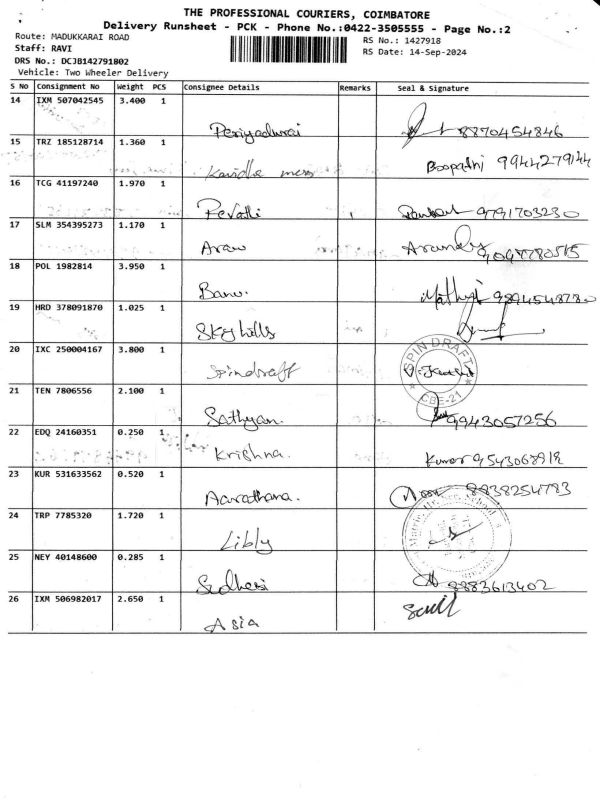 THE PROFESSIONAL COURIERS, COIMBATORE
Delivery Runsheet - PCK - Phone No.:0422-3505555 - Page No.:2
Route: MADUKKARAI ROAD
RS No.: 1427918
Staff: RAVI
RS Date: 14-Sep-2024
DRS No.: DCJB142791802
Vehicle: Two Wheeler Delivery
S No Consignment No Weight PCS Consignee Details Remarks Seal & Signature
14 IXM 507042545 3.400 1
Periyadurai 8870454846
15 TRZ 185128714 1.360 1
Boopathi 9944279144
16 TCG 41197240 1.970 1
Revathi 9791703230
17 SLM 354395273 1.170 1
18 POL 1982814 3.950 1
Banu.
19 HRD 378091870 1.025 1
Sky hills
20 IXC 250004167 3.800 1
Spindraft
SPIN DRAFT
CBE-21
21 TEN 7806556 2.100 1
Sathyan. 9943057256
22 EDQ 24160351 0.250 1
Krishna. Kumar 9543068918
23 KUR 531633562 0.520 1
Aarathana. 8838254783
24 TRP 7785320 1.720 1
Libly
25 NEY 40148600 0.285 1
8883613402
26 IXM 506982017 2.650 1
Asia